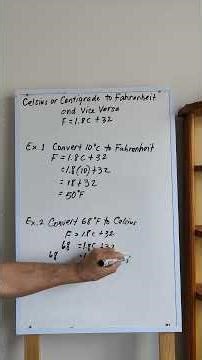 Celsius or Centigrade to Fahrenheit
and Vice Versa
F = 1.8C + 32
Ex. 1 Convert 10°C to Fahrenheit
F = 1.8C + 32
= 1.8(10) + 32
= 18 + 32
= 50°F
Ex. 2 Convert 68°F to Celsius
F = 1.8C + 32
68 = 1.8C + 32
68